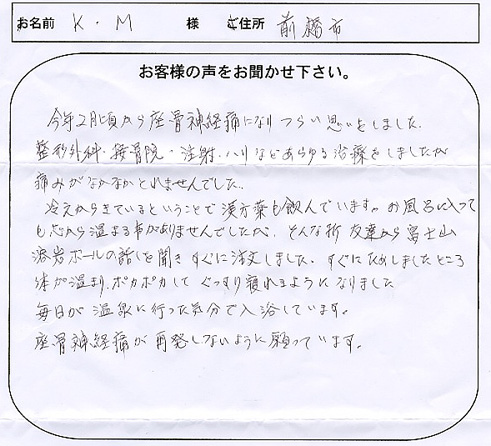 お名前 K・M 様 ご住所 前橋市
お客様の声をお聞かせ下さい。
今年2月頃から座骨神経痛になりつらい思いをしました。
整形外科・接骨院・注射・ハリなどあらゆる治療をしましたが
痛みがなかなかとれませんでした。
冷えからきているということで漢方薬も飲んでいますが。お風呂に入って
も芯から温まる事がありませんでしたが、そんな折 友達から富士山
溶岩ボールの話しを聞きすぐに注文しました。すぐにためしましたところ
体が温まり、ポカポカして ぐっすり寝れるようになりました
毎日が温泉に行った気分で入浴しています。
座骨神経痛が再発しないように願っています。